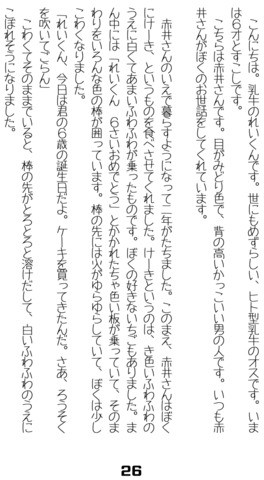 こんにちは。乳牛のれいくんです。世にもめずらしい、ヒト型乳牛のオスです。いま
は６才とすこしです。
こちらは赤井さんです。目がみどり色で、背の高いかっこいい男の人です。いつも赤
井さんがぼくのお世話をしてくれています。
赤井さんのいえで暮らすようになって二年がたちました。このまえ、赤井さんはぼく
にけーき、というものを食べさせてくれました。けーきというのは、き色いふわふわの
うえに白くてあまいふわふわが乗ったものです。ぼくの好きないちごもありました。ま
ん中には「れいくん　６さいおめでとう」とかかれたちゃ色い板が乗っていて、そのま
わりをいろんな色の棒が囲っています。棒の先には火がゆらゆらしていて、ぼくは少し
こわくなりました。
「れいくん、今日は君の６歳の誕生日だよ。ケーキを買ってきたんだ。さあ、ろうそく
を吹いてごらん」
こわくてそのままでいると、棒の先がとろとろと溶けだして、白いふわふわのうえに
こぼれそうになりました。
26